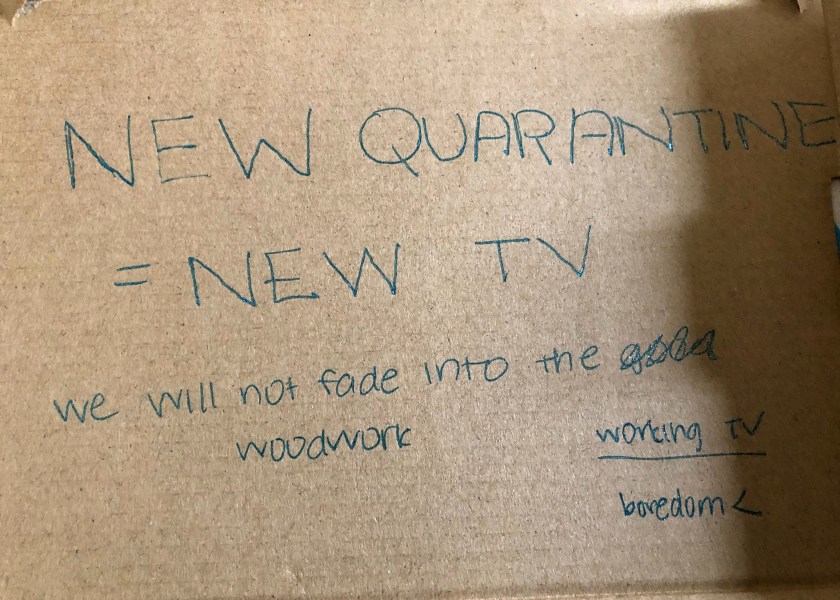 NEW QUARANTINE
= NEW TV
we will not fade into the
woodwork
working TV
boredom <